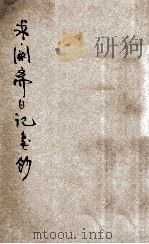 求阙斋日记类钞
研狗
mtoou.info